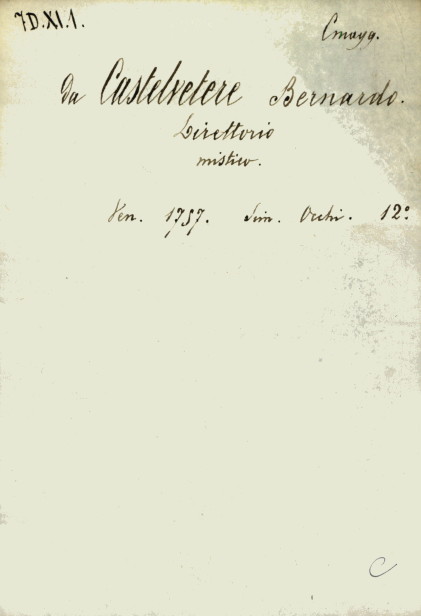 7D.XI.1.
Cmagg.
Da Castelvetere Bernardo.
Direttorio
mistico.
Ven. 1757. Sim. Occhi. 12º
C